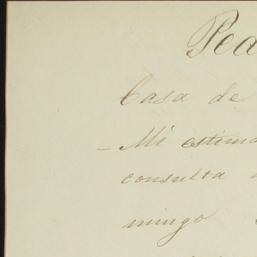 Casa de
– Mi estima
consulta
mingo